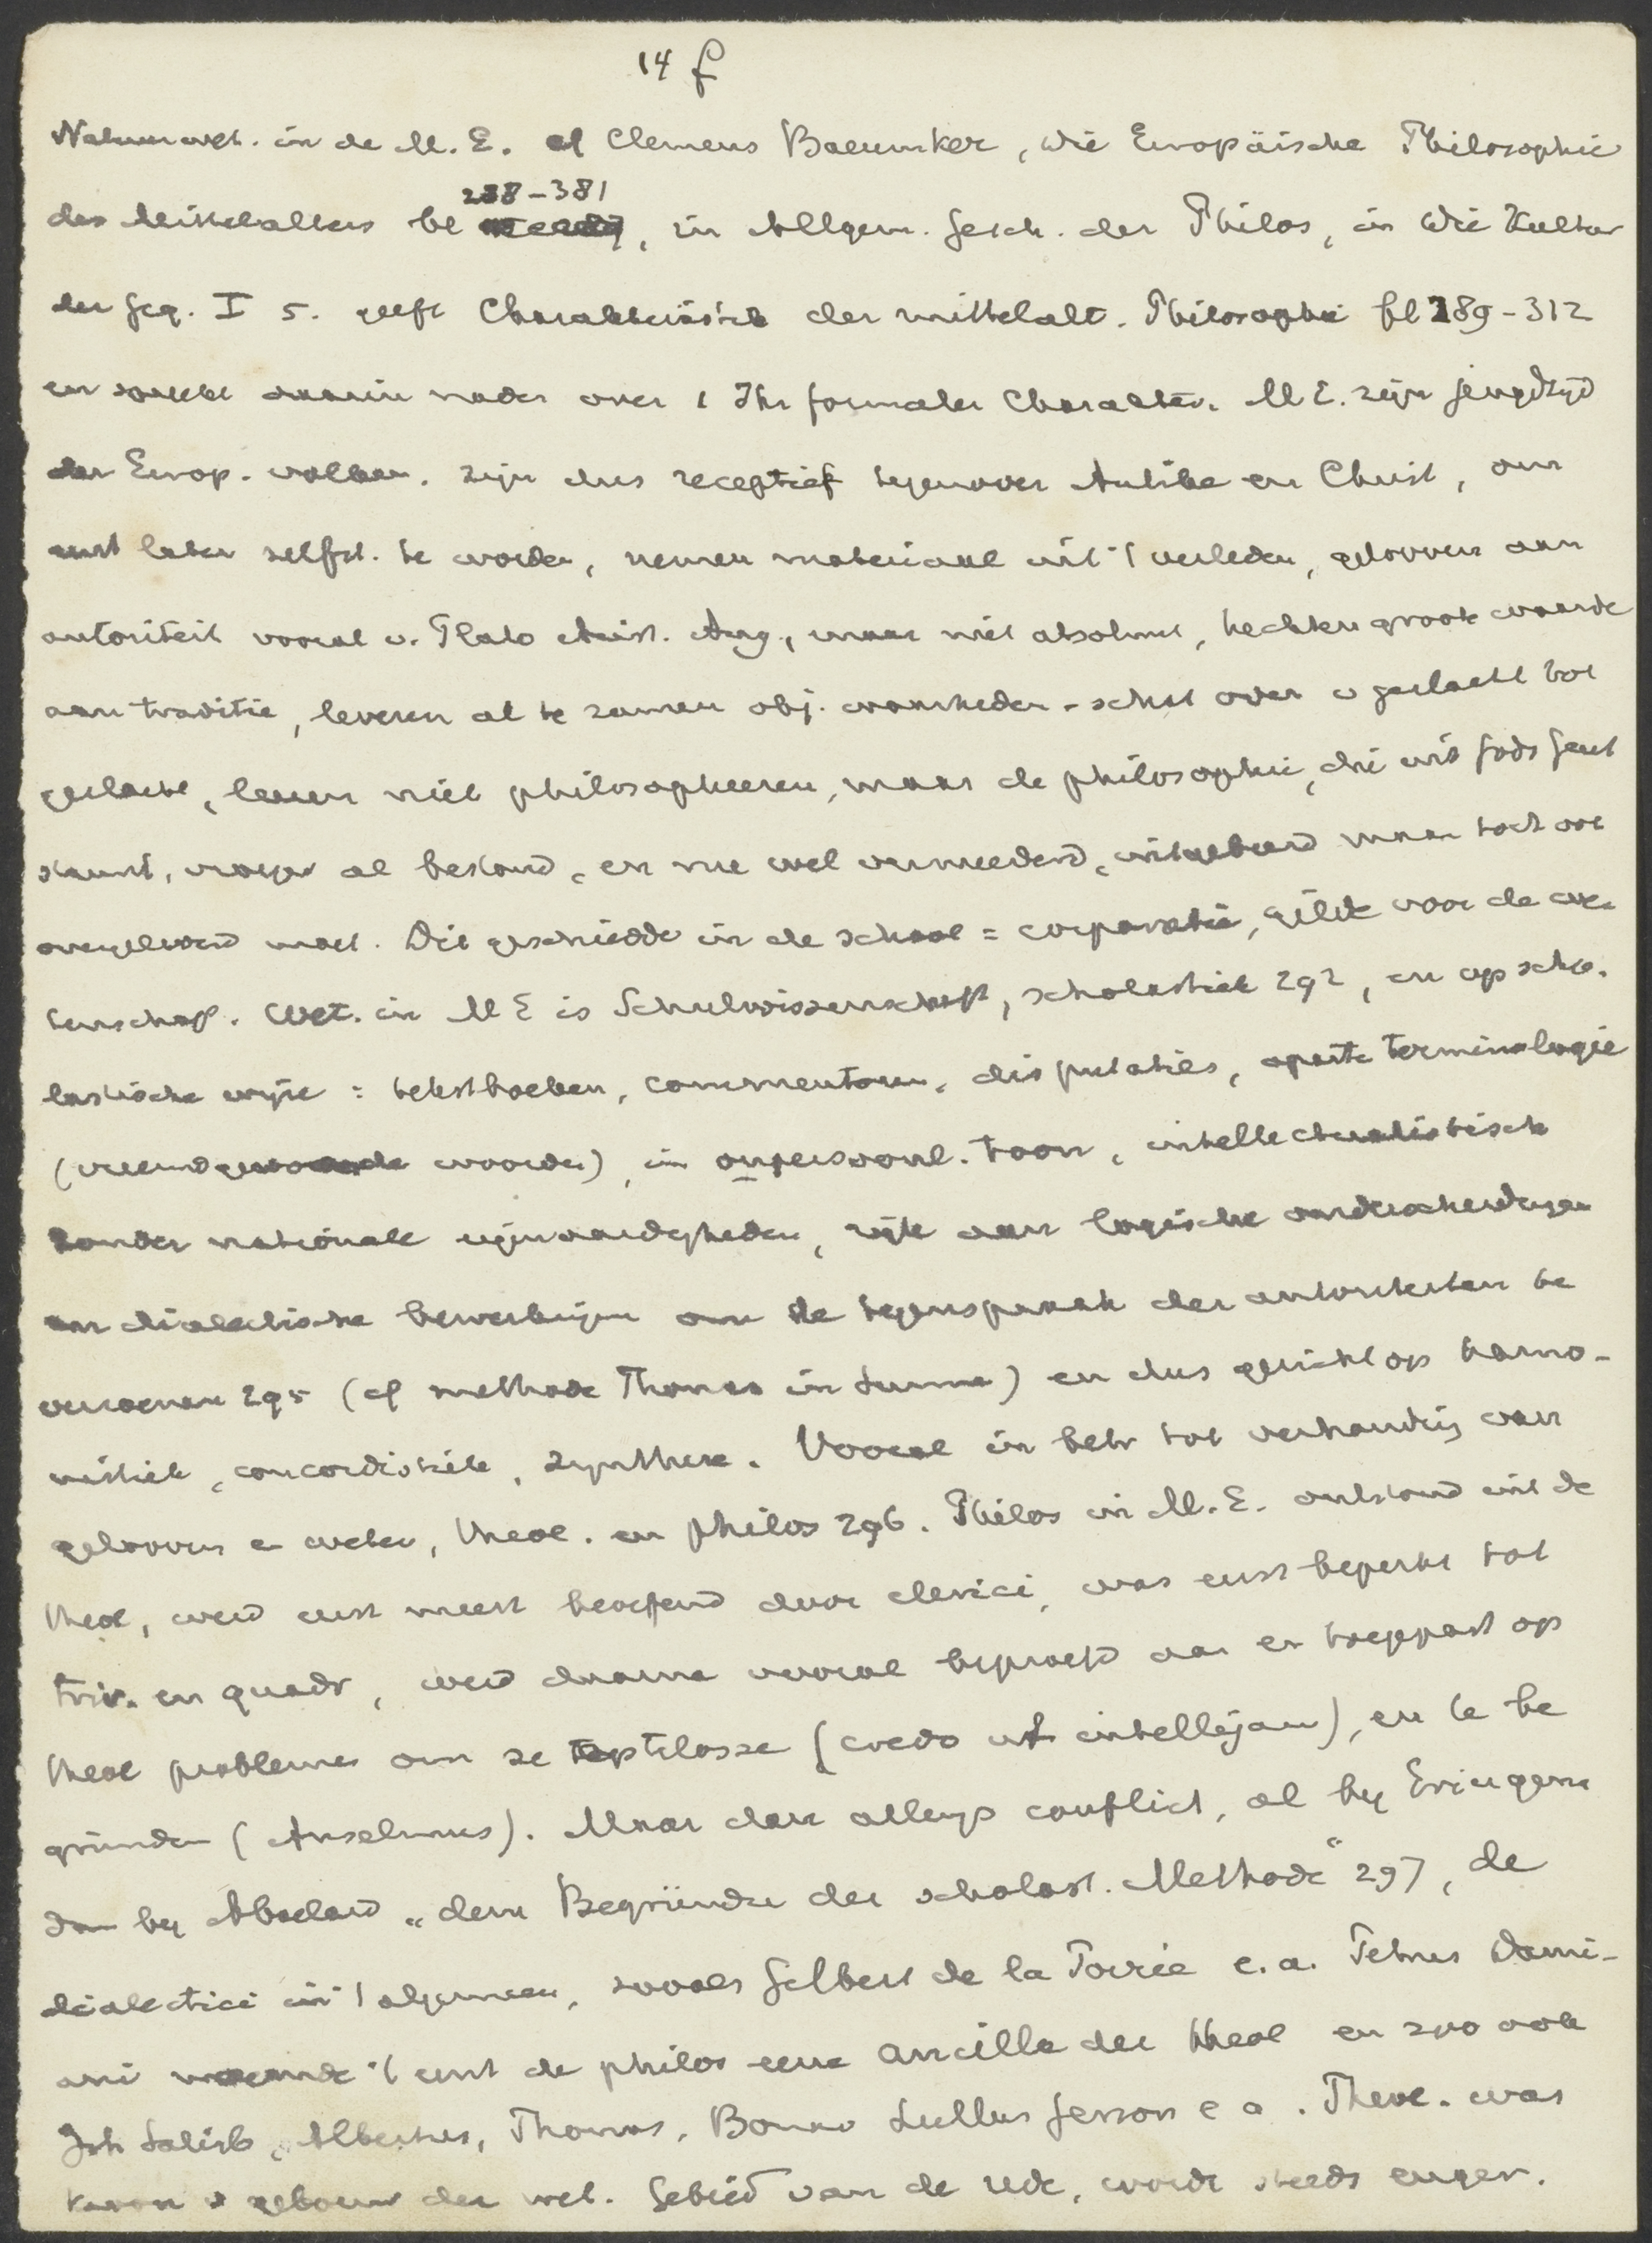 14 f
Natuurwet. in de M.E. cf Clemens Baeumker, Die Europäische Philosophie
288-381
des Mittelalters bl , in Allgem. Gesch. der Philos, in Die Kultur
der Geg. I 5. geeft Charakteristik der mittelalt. Philosophie bl 289-312
en spreekt daarin nader over 1 Ihr formaler Charakter. M E. zijn jeugdtijd
der Europ. volken. zijn dus receptief tegenover Antike en Christ, om
eerst later zelfst. te worden, nemen materiaal uit 't verleden, gelooven aan
autoriteit vooral v. Plato Arist. Aug., maar niet absoluut, hechten groote waarde
aan traditie, leveren al te zamen obj. waarheden-schat over v geslacht tot
geslacht, leeren niet philosopheeren, maar de philosophie, die uit Gods Geest
stamt, vroeger al bestond, en nu wel vermeerderd, uitgebreid maar toch ook
overgeleverd moet. Dit geschiedde in de school = corporatie, gilde voor de we-
tenschap. Wet. in M E is Schulwissenschaft, scholastiek 292, en op scho-
lastische wijze : tekstboeken, commentaren, disputaties, aparte terminologie
(vreemd woorden), in onpersoonl. toon, intellectualistisch
zonder nationale eigenaardigheden, rijk aan logische onderscheidingen
en dialectische bewerkingen om de tegenspraak der autoriteiten te
verzoenen 295 (cf methode Thomas in Summa) en dus gericht op harmo-
nistiek, concordistiek, synthese. Vooral in betr tot verhouding van
gelooven en weten, theol. en philos 296. Philos in M.E. ontstond uit de
theol, werd eerst meest beoefend door clerici, was eerst beperkt tot
triv. en quadr, werd daarna vooral beproefd aan en toegepast op
theol problemen om ze op te lossen (credo ut intellejam), en te be
gründen (Anselmus). Maar dan allengs conflict, al bij Eriugena
dan bij Abaelard „dem Begründer der scholast. Methode" 297, de
dialectici in 't algemeen, zooals Gilbert de la Porrée e.a. Petrus Dami-
ani noemde 't eerst de philos eene ancilla der theol en zoo ook
Joh Salisb, Albertus, Thomas, Bonav Lullus Gerson e a. Theol. was
kroon v gebouw der wet. Gebied van de rede, wordt steeds enger.